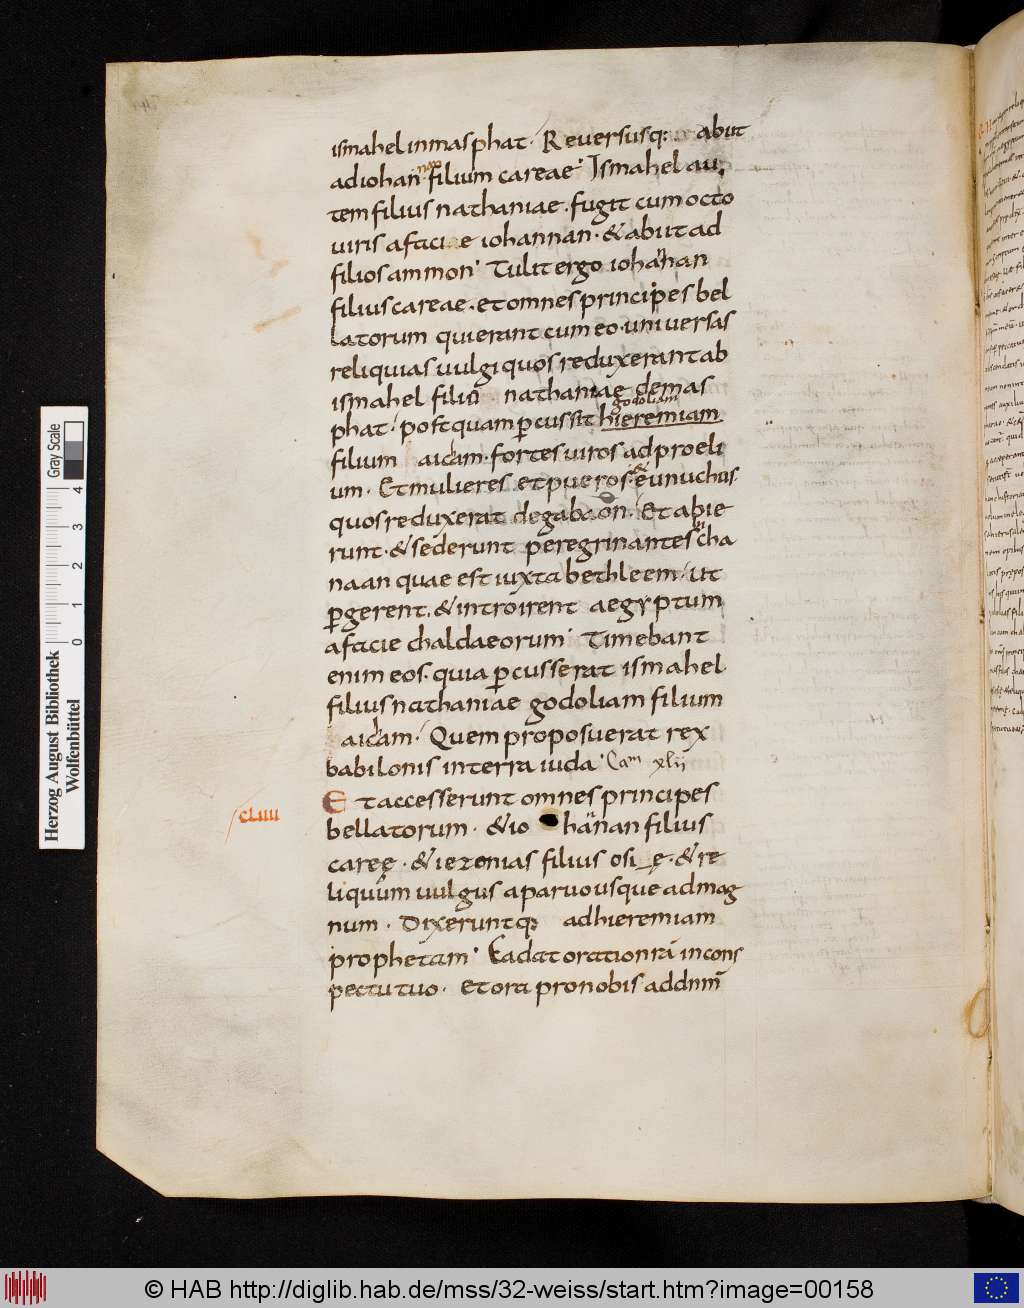 ismahel in masphat. Reversusq: abiit
ad iohannan filium careae. Ismahel au
tem filius nathaniae. fugit cum octo
viris a facie iohannan. & abiit ad
filios ammon. Tulit ergo iohannan
filius careae. et omnes principes bel
latorum qui erant cum eo. universas
reliquias vulgi quos reduxerant ab
ismahel filiū nathaniae de mas
phat. postquam ꝑcussit hieremiam
godoliam
filium aicam. fortes viros ad proeli
um. Et mulieres et pueros. & eunuchos.
quos reduxerat de gabaon. Et abie
runt. & sederunt peregrinantes in cha
naan quae est iuxta bethleem. ut
ꝑgerent. & introirent aegyptum
a facie chaldaeorum. Timebant
enim eos. quia ꝑcusserat ismahel
filius nathaniae godoliam filium
aicam. Quem proposuerat rex
babilonis in terra iuda. Cam xlii
cliiii
Et accesserunt omnes principes
bellatorum. & iohannan filius
caręę. & iezonias filius osi ę. & re
liquum vulgus a parvo usque ad mag
num. Dixeruntq: ad hieremiam
prophetam. Cadat oratio nrā in cons
pectu tuo. Et ora pro nobis ad dnm̄
Herzog August Bibliothek
Wolfenbüttel
0 1 2 3 4
Gray Scale
© HAB http://diglib.hab.de/mss/32-weiss/start.htm?image=00158